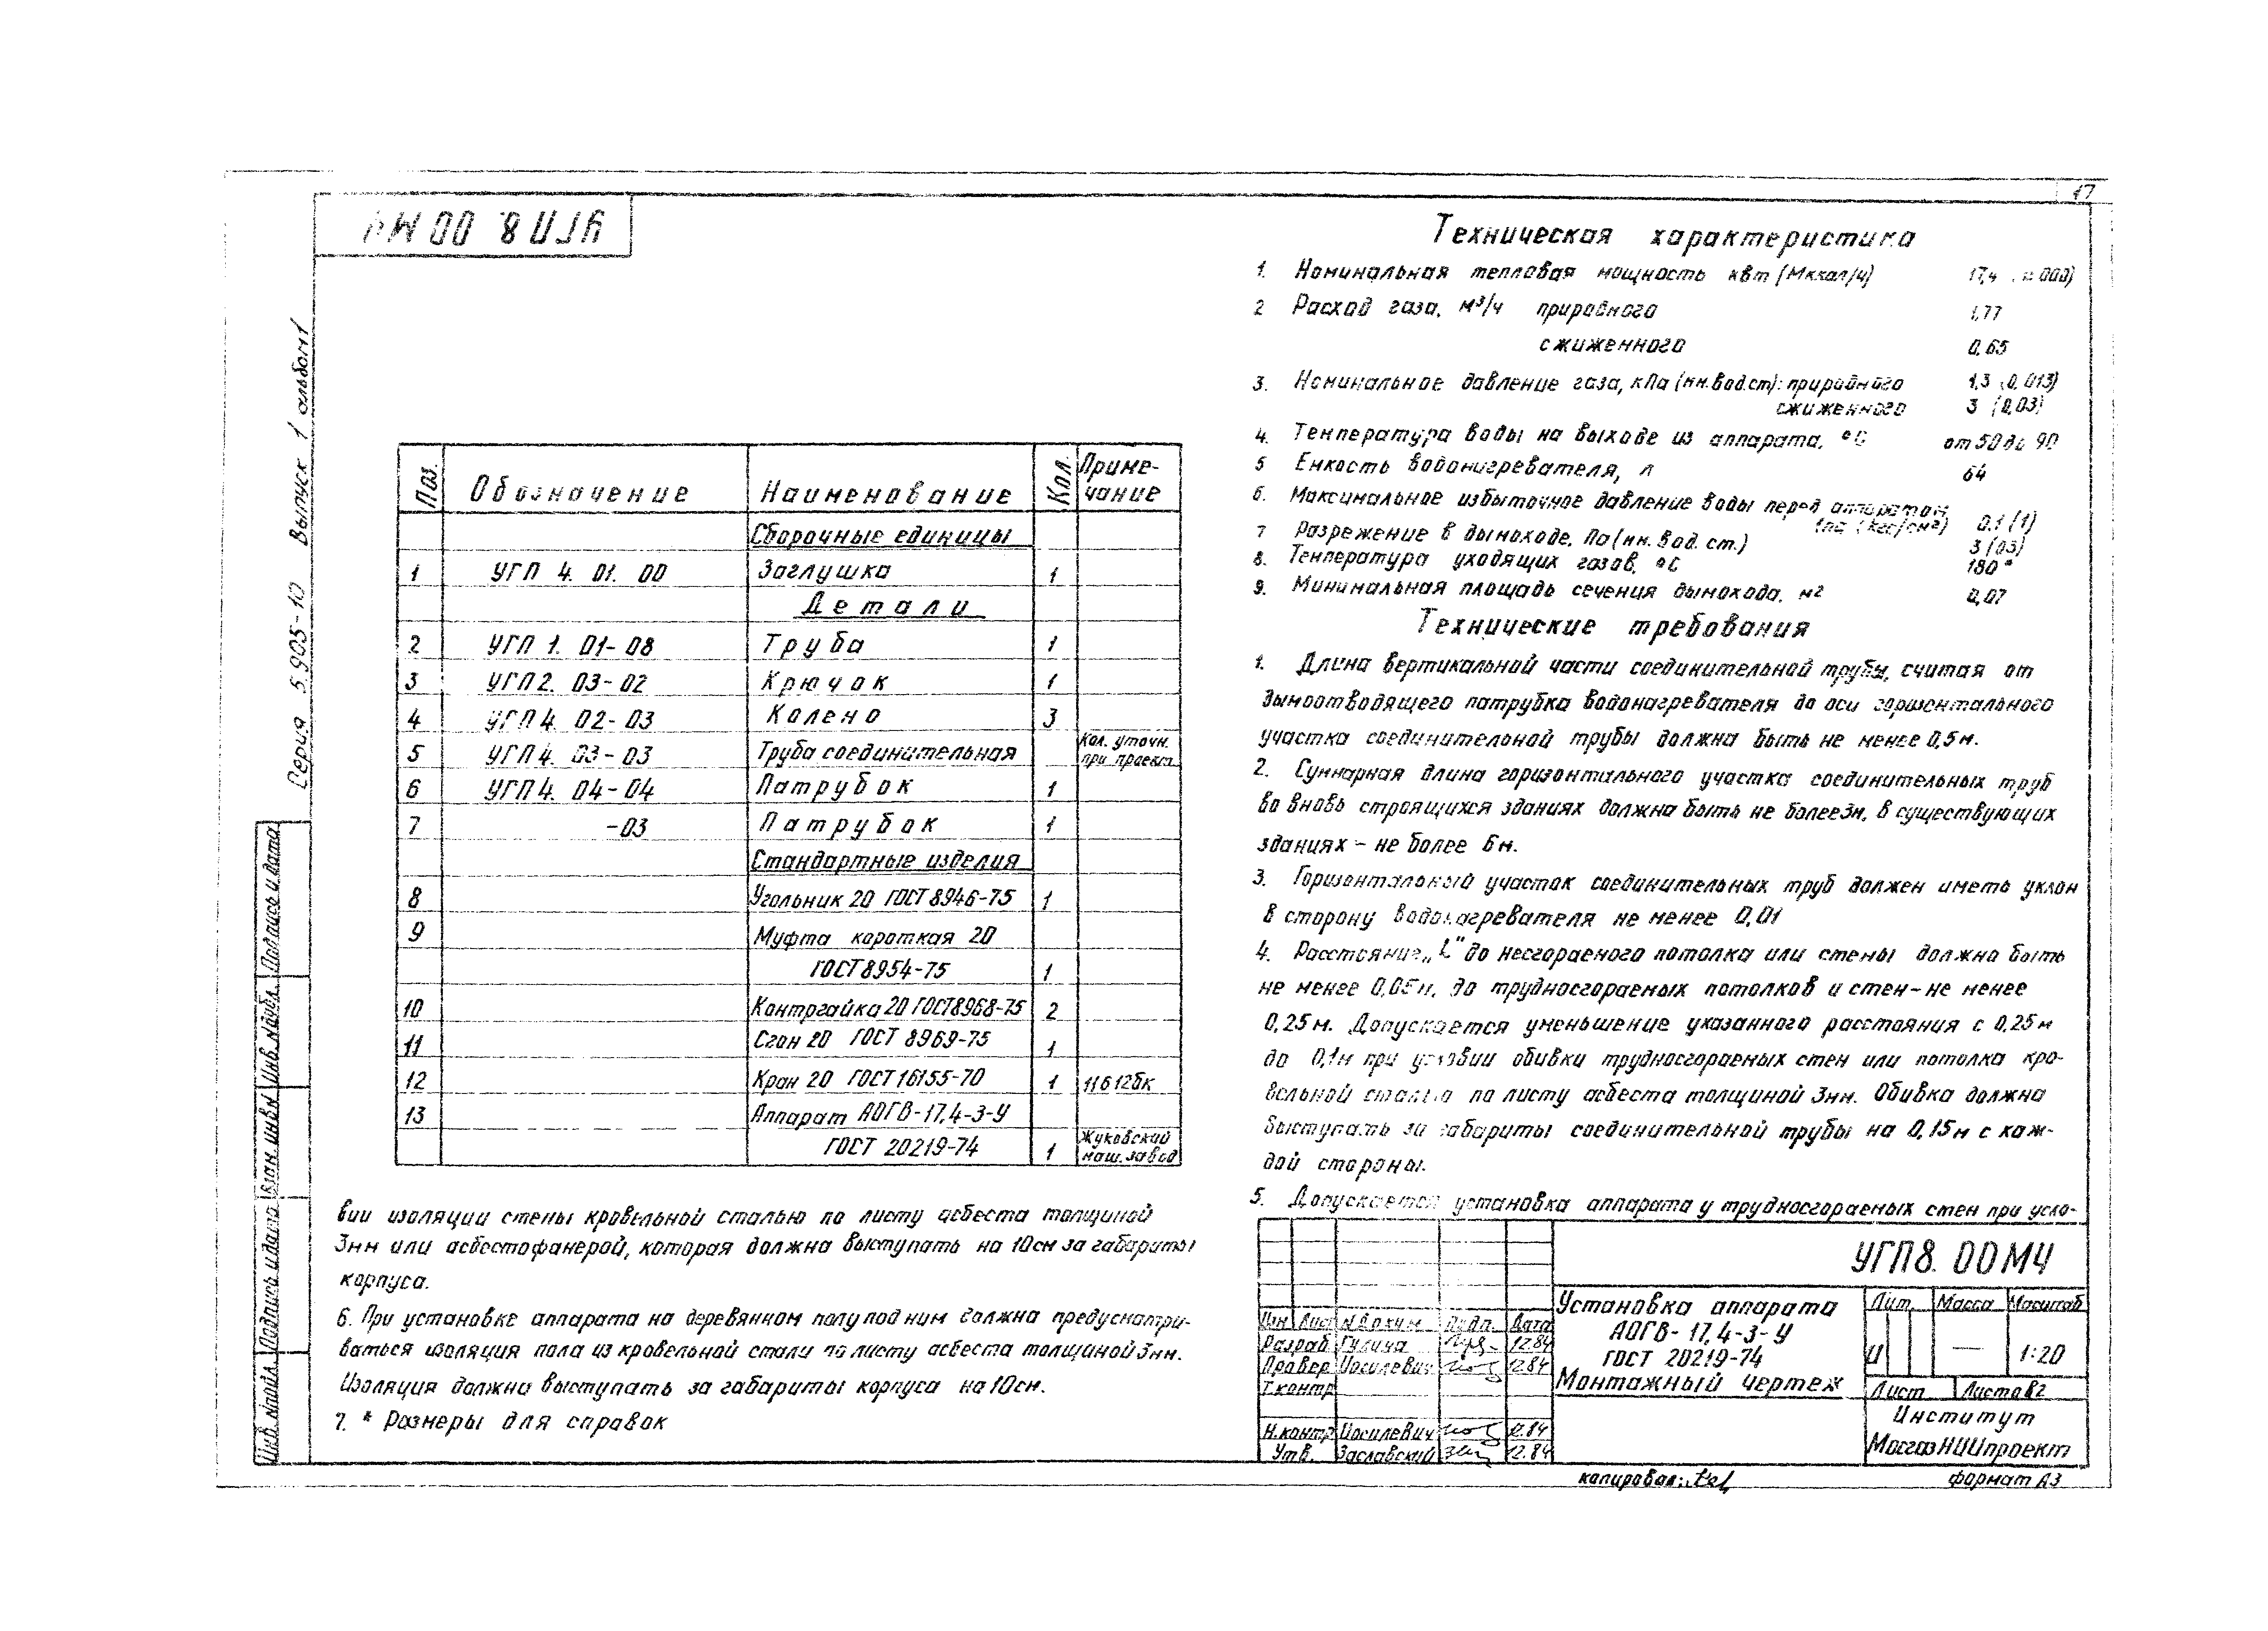 17
УГП 8. 00 МЧ
Серия 5.905-10 Выпуск 1 альбом 1
Техническая характеристика
1. Номинальная тепловая мощность квт (Мккал/ч) 17,4
2 Расход газа, м³/ч природного 1,77
сжиженного 0,65
3. Номинальное давление газа, кПа (мм.вод.ст): природного 1,3 (0,013)
сжиженного 3 (0,03)
4. Температура воды на выходе из аппарата, °С от 50 до 90
5 Емкость водонагревателя, л 64
6. Максимальное избыточное давление воды перед аппаратом
(кгс/см²) 0,1 (1)
7 Разрежение в дымоходе, Па (мм. вод. ст.) 3 (03)
8. Температура уходящих газов, °С 180*
9. Минимальная площадь сечения дымохода, м² 0,07
Технические требования
1. Длина вертикальной части соединительной трубы, считая от
дымоотводящего патрубка водонагревателя до оси горизонтального
участка соединительной трубы должна быть не менее 0,5м.
2. Суммарная длина горизонтального участка соединительных труб
во вновь строящихся зданиях должна быть не более 3м, в существующих
зданиях – не более 6м.
3. Горизонтальный участок соединительных труб должен иметь уклон
в сторону водонагревателя не менее 0,01
4. Расстояние „L" до несгораемого потолка или стены должно быть
не менее 0,05м, до трудносгораемых потолков и стен – не менее
0,25м. Допускается уменьшение указанного расстояния с 0,25м
до 0,1м при условии обивки трудносгораемых стен или потолка кро-
вельной сталью по листу асбеста толщиной 3мм. Обивка должна
выступать за габариты соединительной трубы на 0,15м с каж-
дой стороны.
5. Допускается установка аппарата у трудносгораемых стен при усло-
Поз. Обозначение Наименование Кол. Приме-
чание
Сборочные единицы
1 УГП 4. 01. 00 Заглушка 1
Детали
2 УГП 1. 01-08 Труба 1
3 УГП 2. 03-02 Крючок 1
4 УГП 4. 02-03 Колено 3
5 УГП 4. 03-03 Труба соединительная Кол. уточн.
при проект.
6 УГП 4. 04-04 Патрубок 1
7 -03 Патрубок 1
Стандартные изделия
8 Угольник 20 ГОСТ 8946-75 1
9 Муфта короткая 20
ГОСТ 8954-75 1
10 Контргайка 20 ГОСТ 8968-75 2
11 Сгон 20 ГОСТ 8969-75 1
12 Кран 20 ГОСТ 16155-70 1 11Б12бк
13 Аппарат АОГВ-17,4-3-У
ГОСТ 20219-74 1 Жуковский
маш. завод
вии изоляции стены кровельной сталью по листу асбеста толщиной
3мм или асбестофанерой, которая должна выступать на 10см за габариты
корпуса.
6. При установке аппарата на деревянном полу под ним должна предусматри-
ваться изоляция пола из кровельной стали по листу асбеста толщиной 3мм.
Изоляция должна выступать за габариты корпуса на 10см.
7. * Размеры для справок
Подпись и дата
Инв. № дубл.
Взам. инв. №
Подпись и дата
Инв. № подл.
УГП 8. 00 МЧ
Изм Лист № докум Подп. Дата
Разраб Гулина 12.84
Провер Иосилевич 12.84
Т.контр
Н.контр Иосилевич 12.84
Утв. Заславский 12.84
Установка аппарата
АОГВ-17,4-3-У
ГОСТ 20219-74
Монтажный чертеж
Лит. Масса Масштаб
И — 1:20
Лист Листов 2
Институт
МосгазНИИпроект
копировал:
формат А3